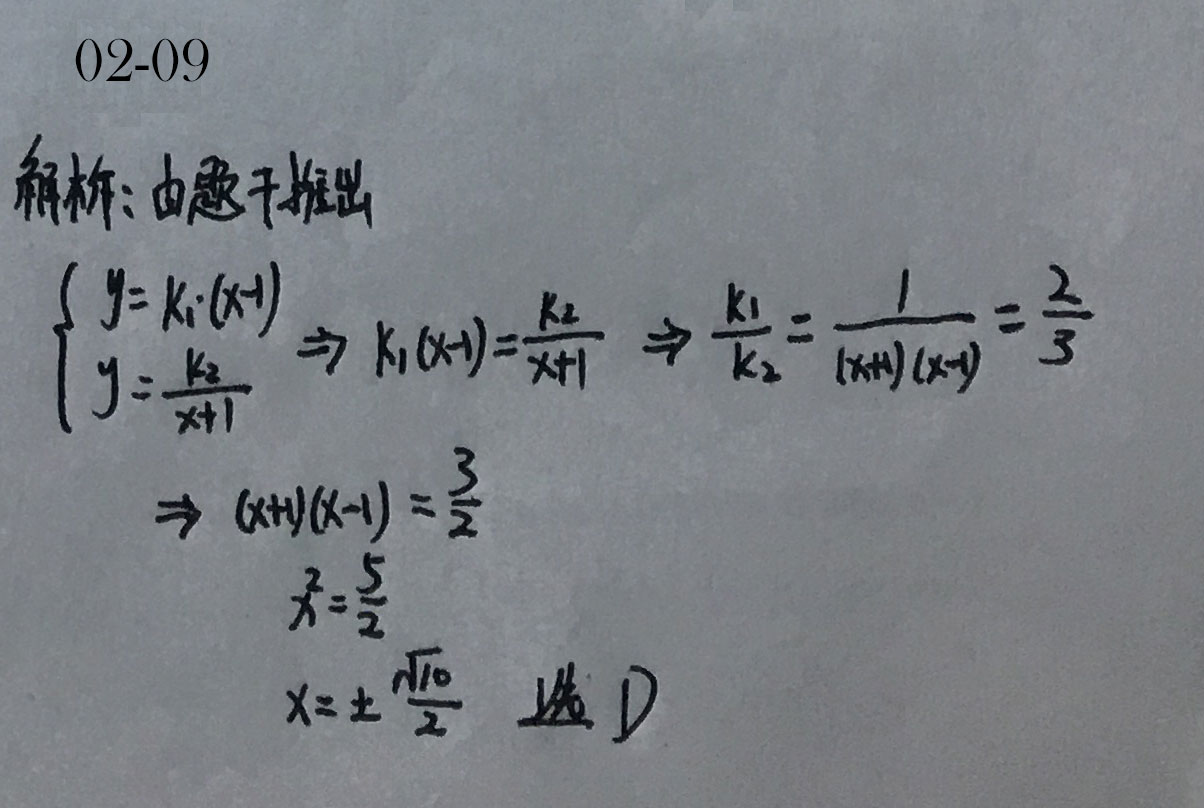 02-09
解析：由题干推出
{ y = k₁·(x-1)
y = k₂/(x+1) ⇒ k₁(x-1) = k₂/(x+1) ⇒ k₁/k₂ = 1/((x+1)(x-1)) = 2/3
⇒ (x+1)(x-1) = 3/2
x² = 5/2
x = ± √10/2 选 D